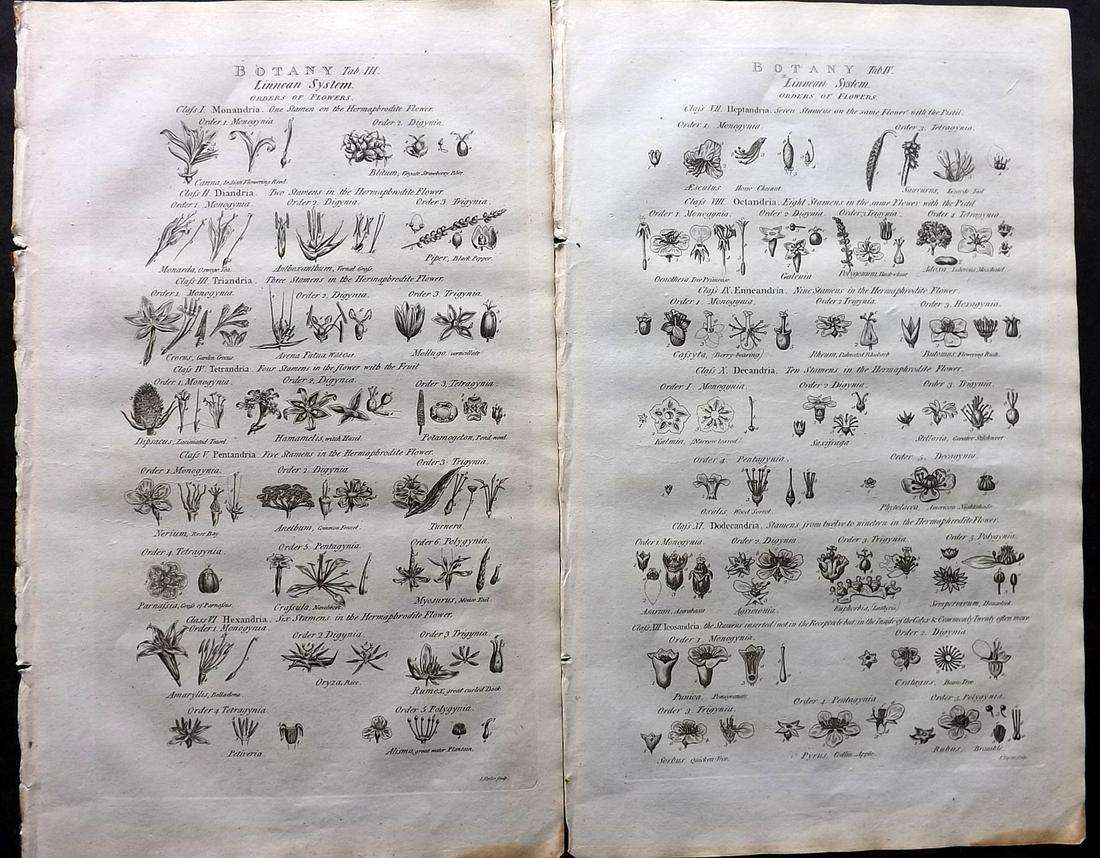 BOTANY Tab. III.
Linnean System.
ORDERS OF FLOWERS.
Claſs I. Monandria. One Stamen on the Hermaphrodite Flower.
Order 1. Monogynia Order 2. Digynia.
Canna, Indian Flowering Reed. Blitum,
Claſs II. Diandria. Two Stamens in the Hermaphrodite Flower.
Order 1. Monogynia. Order 2. Digynia. Order 3. Trigynia
Monarda, Oswego Tea. Anthoxanthum, Vernal Graſs Piper, Black Pepper.
Claſs III. Triandria. Three Stamens in the Hermaphrodite Flower.
Order 1. Monogynia. Order 2. Digynia. Order 3. Trigynia
Crocus, Garden Crocus Avena Fatua, Wild Oat Mollugo,
Claſs IV. Tetrandria Four Stamens in the flower with the Fruit
Order 1. Monogynia Order 2. Digynia Order 3. Tetragynia
Dipsacus, Laciniated Teasel. Hamamelis, witch Hazel. Potamogeton, Pond weed.
Claſs V. Pentandria. Five Stamens in the Hermaphrodite Flower.
Order 1. Monogynia Order 2. Digynia Order 3. Trigynia.
Nerium, Rose Bay Anethum, Common Fennel. Turnera
Order 4. Tetragynia. Order 5. Pentagynia. Order 6. Polygynia.
Parnaſsia, Graſs of Parnaſsus. Craſsula, Myosurus, Mouse Tail
Claſs VI. Hexandria. Six Stamens in the Hermaphrodite Flower.
Order 1. Monogynia. Order 2 Digynia Order 3 Trigynia
Amaryllis, Belladona. Oryza, Rice. Rumex, great curled Dock
Order 4 Tetragynia. Order 5. Polygynia.
Petiveria Alisma, great water Plantain.
BOTANY Tab. IV.
Linnean System.
ORDERS OF FLOWERS.
Claſs VII. Heptandria. Seven Stamens on the same Flower with the Pistil.
Order 1. Monogynia Order 3. Tetragynia.
Æsculus Horse Chesnut Saururus, Lizards Tail
Claſs VIII. Octandria. Eight Stamens in the same Flower with the Pistil
Order 1. Monogynia. Order 2 Digynia Order 3 Trigynia. Order 4 Tetragynia.
Oenothera Tree Primrose Galenia Polygonum, Buck-wheat Adoxa, Tuberous Moschatel
Claſs IX. Enneandria. Nine Stamens in the Hermaphrodite Flower.
Order 1. Monogynia Order 2 Trigynia. Order 3. Hexagynia.
Caſsyta, (Berry-bearing) Rheum, Palmated Rhubarb Butomus, Flowering Rush.
Claſs X. Decandria. Ten Stamens in the Hermaphrodite Flower.
Order 1. Monogynia Order 2 Digynia. Order 3. Trigynia
Kalmia, (Narrow leaved) Saxifraga Stellaria, Greater Stitchwort
Order 4. Pentagynia. Order 5. Decagynia.
Oxalis Wood Sorrel. Phytolacca, American Nightshade
Claſs XI. Dodecandria. Stamens from twelve to nineteen in the Hermaphrodite Flower.
Order 1 Monogynia. Order 2. Digynia. Order 3. Trigynia Order 5. Polygynia.
Asarum, Asarabacca Agrimonia. Euphorbia, (Lathyris) Sempervivum, Houseleek
Claſs XII. Icosandria. the Stamens inserted (not in the Receptacle but) in the Inside of the Calyx & Commonly Twenty often more
Order 1. Monogynia Order 2. Digynia
Punica, Pomgranate Cratagus, Beam-Tree
Order 3. Trigynia. Order 4. Pentagynia Order 5. Polygynia.
Sorbus, Quicken-Tree. Pyrus, Codlin Apple. Rubus, Bramble